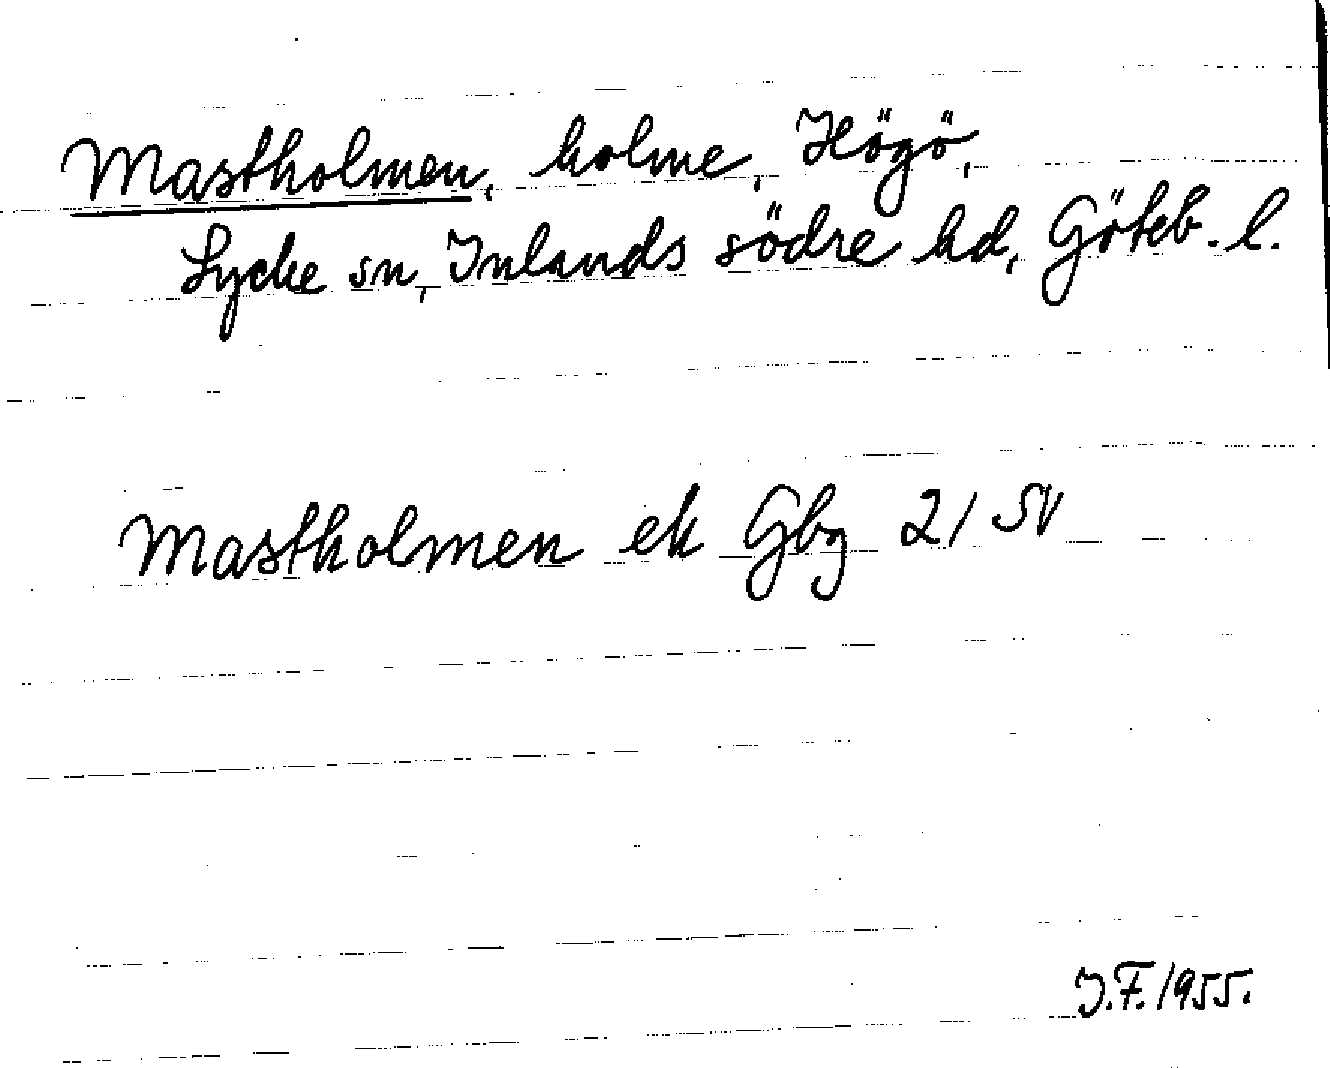 Mastholmen, holme, Högö,
Lycke sn, Inlands södre hd, Göteb. l.
Mastholmen ek Gbg 2/ SV
J.F. 1955.